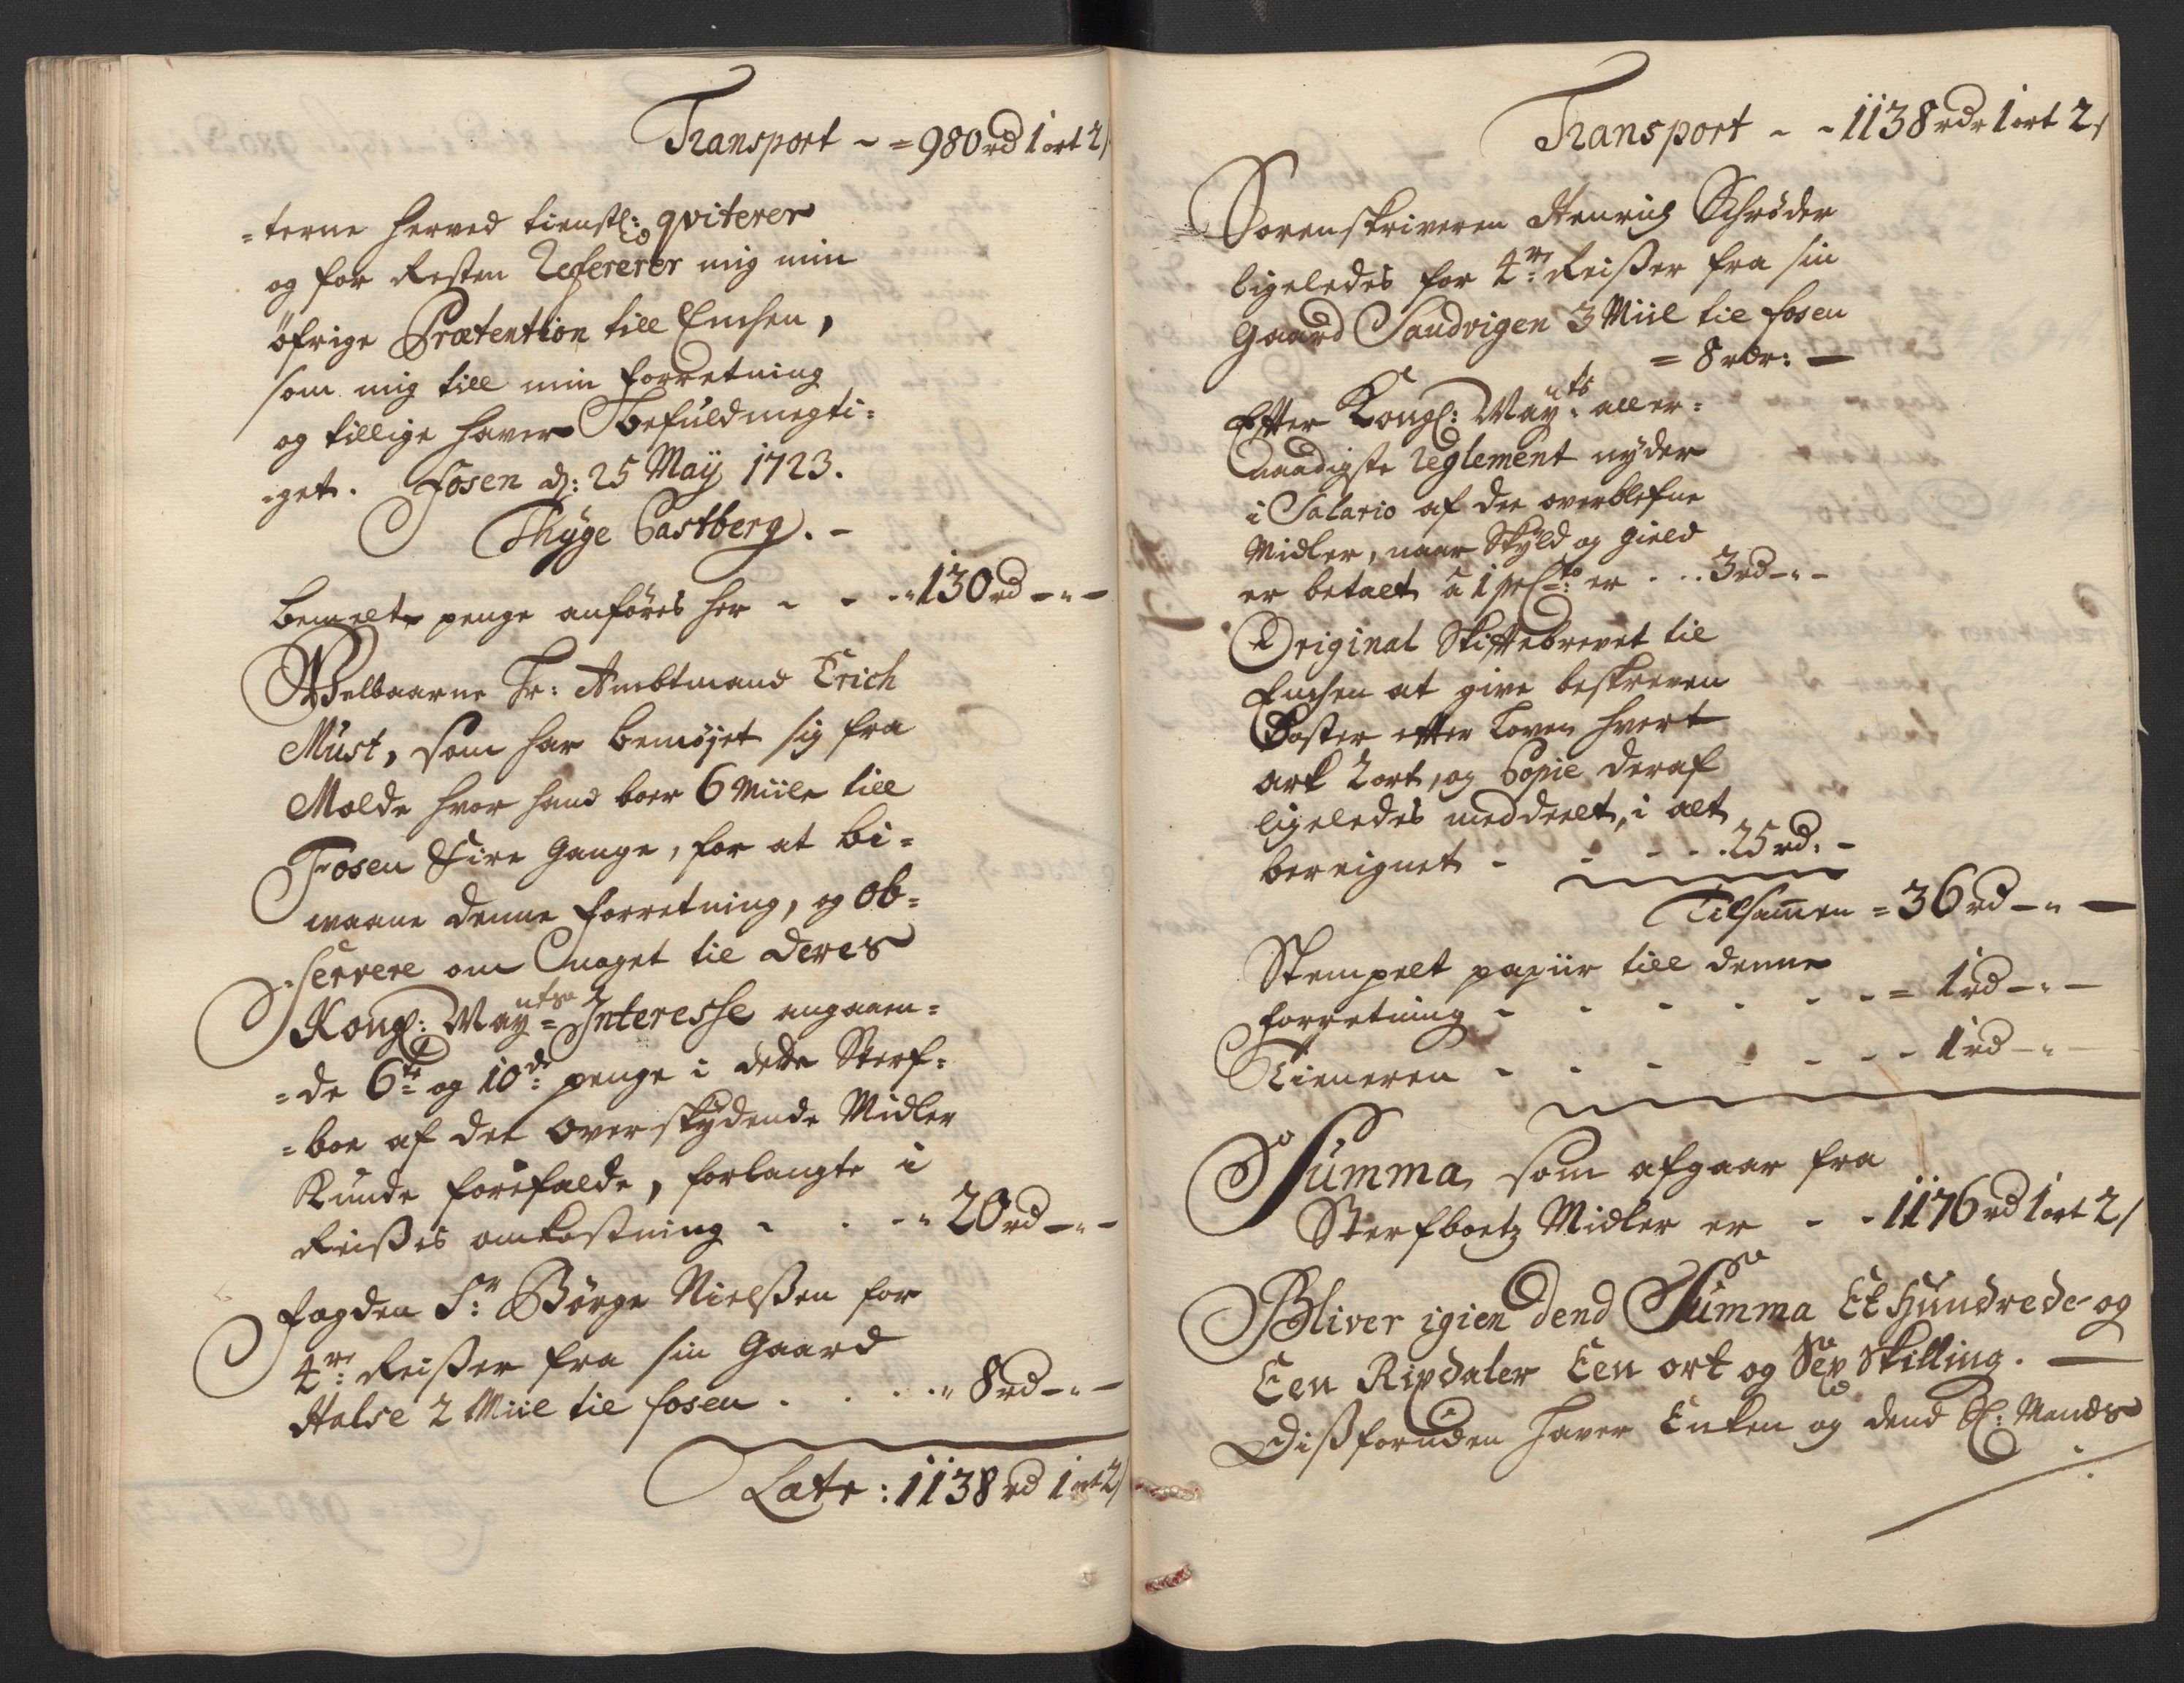 Transport - = 980 rd 1 ort 2 s
=terne herved tienstl: qviterer
og for Resten Refererer mig min
öfrige Prætention till Enchen,
som mig till min forretning
og tillige haver befuldmegti=
=get. Fosen d: 25 Maÿ 1723.
Thÿge Castberg. -
bemelte penge anföres her - - - " 130 rd - " -
Welbaarne Hr: Ambtmand Erich
Must, som har bemöjet sig fra
Molde hvor hand boer 6 Miile till
Fosen Fire gange, for at bi=
waane denne forretning, og ob=
=servere om noget til Deres
Kongl: May:ts Interesse angaaen=
=de 6te og 10de penge i dette Sterf=
=boe af det overskydende Midler
Kunde forefalde, forlangte i
Reißes omkostning - - - " 20 rd - " -
Fogden Sr: Börge Nielßen for
4re: Reißer fra sin Gaard
Halse 2 Miil til Fosen . . . " 8 rd - " -
Latr: 1138 rd 1 ort 2 s
Transport - - 1138 rdr 1 ort 2 s
Sorenskriveren Henrich Schröder
ligeledes for 4re: Reißer fra sin
Gaard Sandvigen 3 Miil til Fosen
= 8 rdr: -
Efter Kongl: May:ts aller=
naadigste Reglement nÿder
i Salario af de overblefne
Midler, naar Skÿld og gield
er betalt à 1 prCto: er . . . 3 rd - " -
Original Skiftebrevet til
Enchen at give beskreven
Koster efter Loven hvert
ark 2 ort, og Copie deraf
ligeledes meddeelt, i alt
beregnet - - - - . 25 rd. -
Tilsammen = 36 rd - " -
Stempelt papiir till denne
forretning - - - - - = 1 rd - " -
Tieneren - - - - - - 1 rd - " -
Summa, som afgaar fra
Sterfboets Midler er - - 1176 rd 1 ort 2 s
Bliver igien dend Summa Et Hundrede og
Een Rixdaler Een ort og Sex Skilling. -
Dißforuden haver Enken og dend Sl: Mands